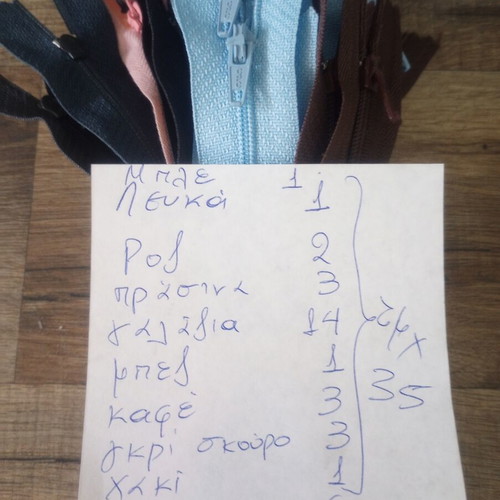 Μπλε 1
Λευκά 1
Ροζ 2
πράσινα 3
γαλάζια 14
μπεζ 1
καφέ 3
γκρί σκούρο 3
χακί 1
35